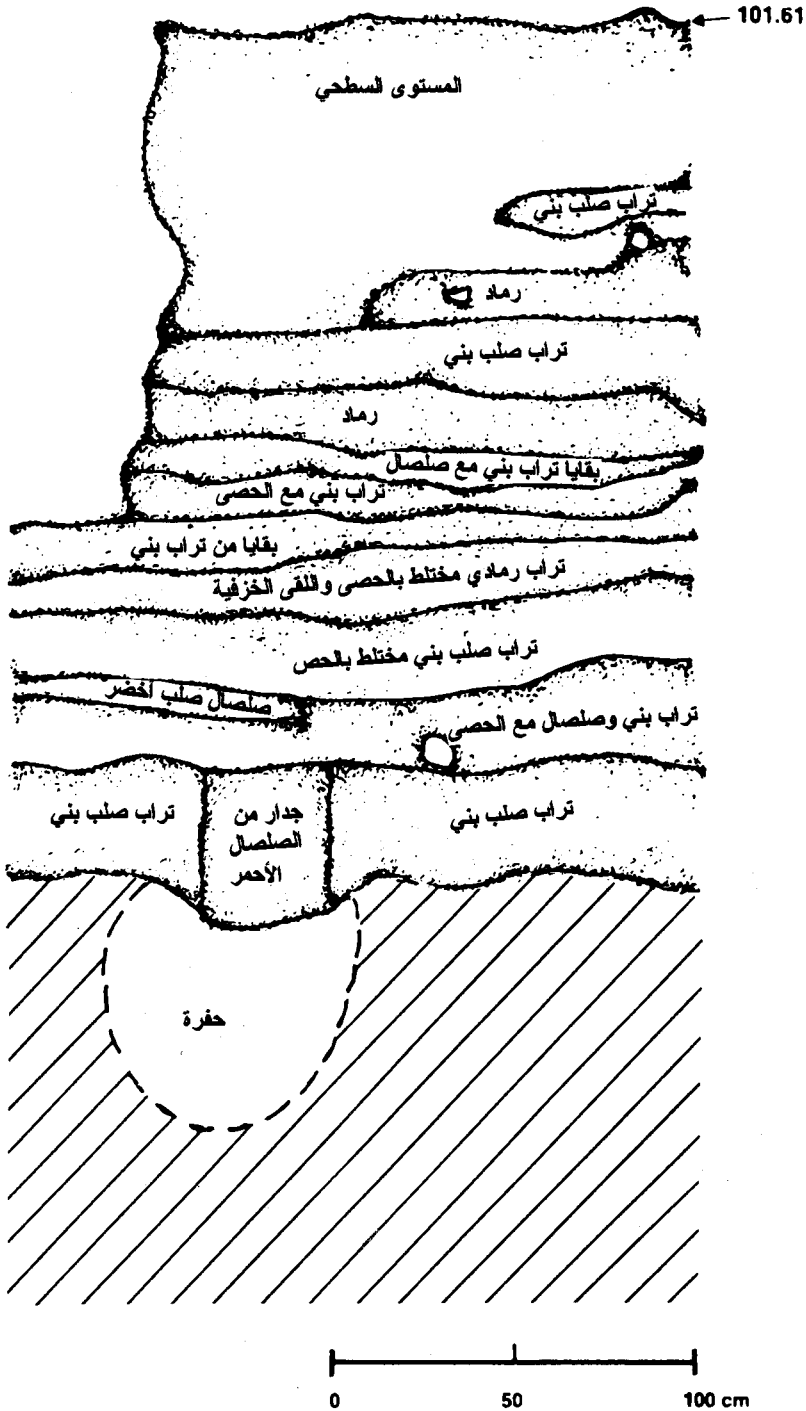 101.61
المستوى السطحي
تراب صلب بني
رماد
تراب صلب بني
رماد
بقايا تراب بني مع صلصال
تراب بني مع الحصى
بقايا من تراب بني
تراب رمادي مختلط بالحصى واللقى الخزفية
تراب صلب بني مختلط بالحص
صلصال صلب أخضر
تراب بني وصلصال مع الحصى
تراب صلب بني
جدار من
الصلصال
الأحمر
تراب صلب بني
حفرة
0 50 100 cm